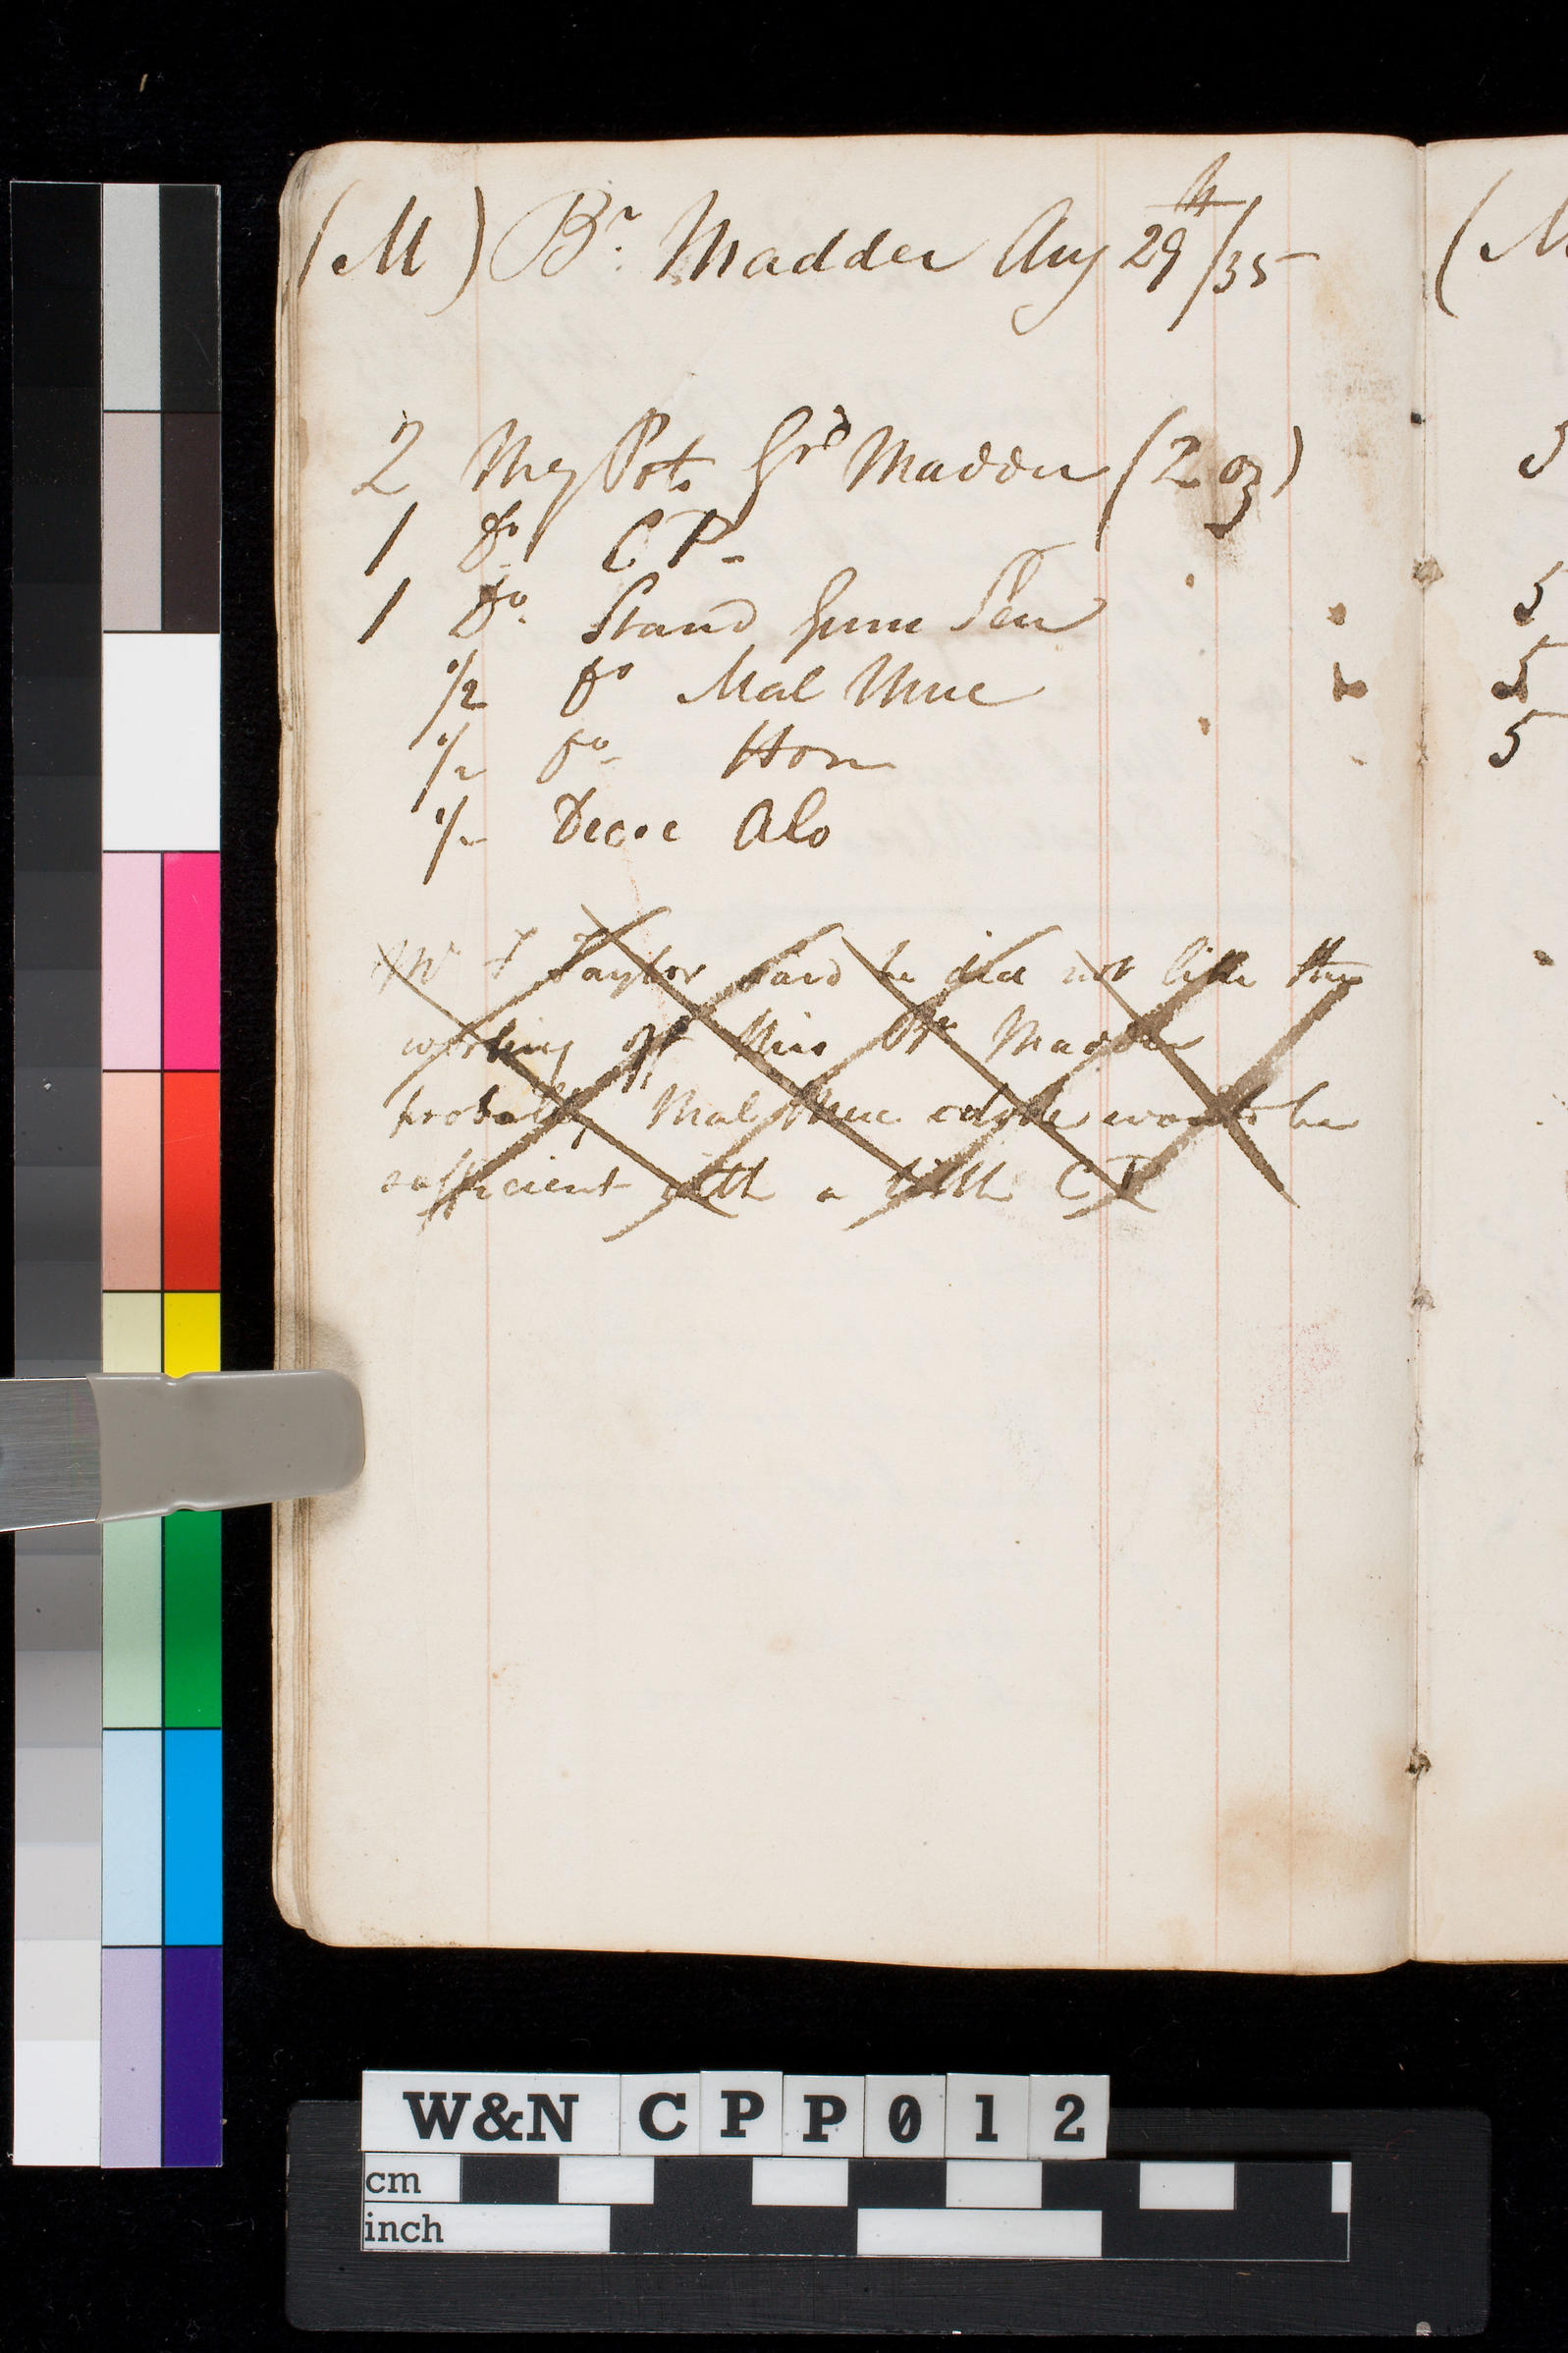 (M) Br. Madder Aug 29th/35
2 Meg Pots Grd Madder (2 oz)
1 Do. C P.
1 Do. Stand Gum Sen
1/2 Do Mal Muc
1/2 Do. Hon
1/2 Decoc Alo
Mr T Taylor said he did not like the
working off this Br Madder
probably Mal Muc alone would be
sufficient with a little C P
(M
5
5
5
5
W&N CPP012
cm
inch